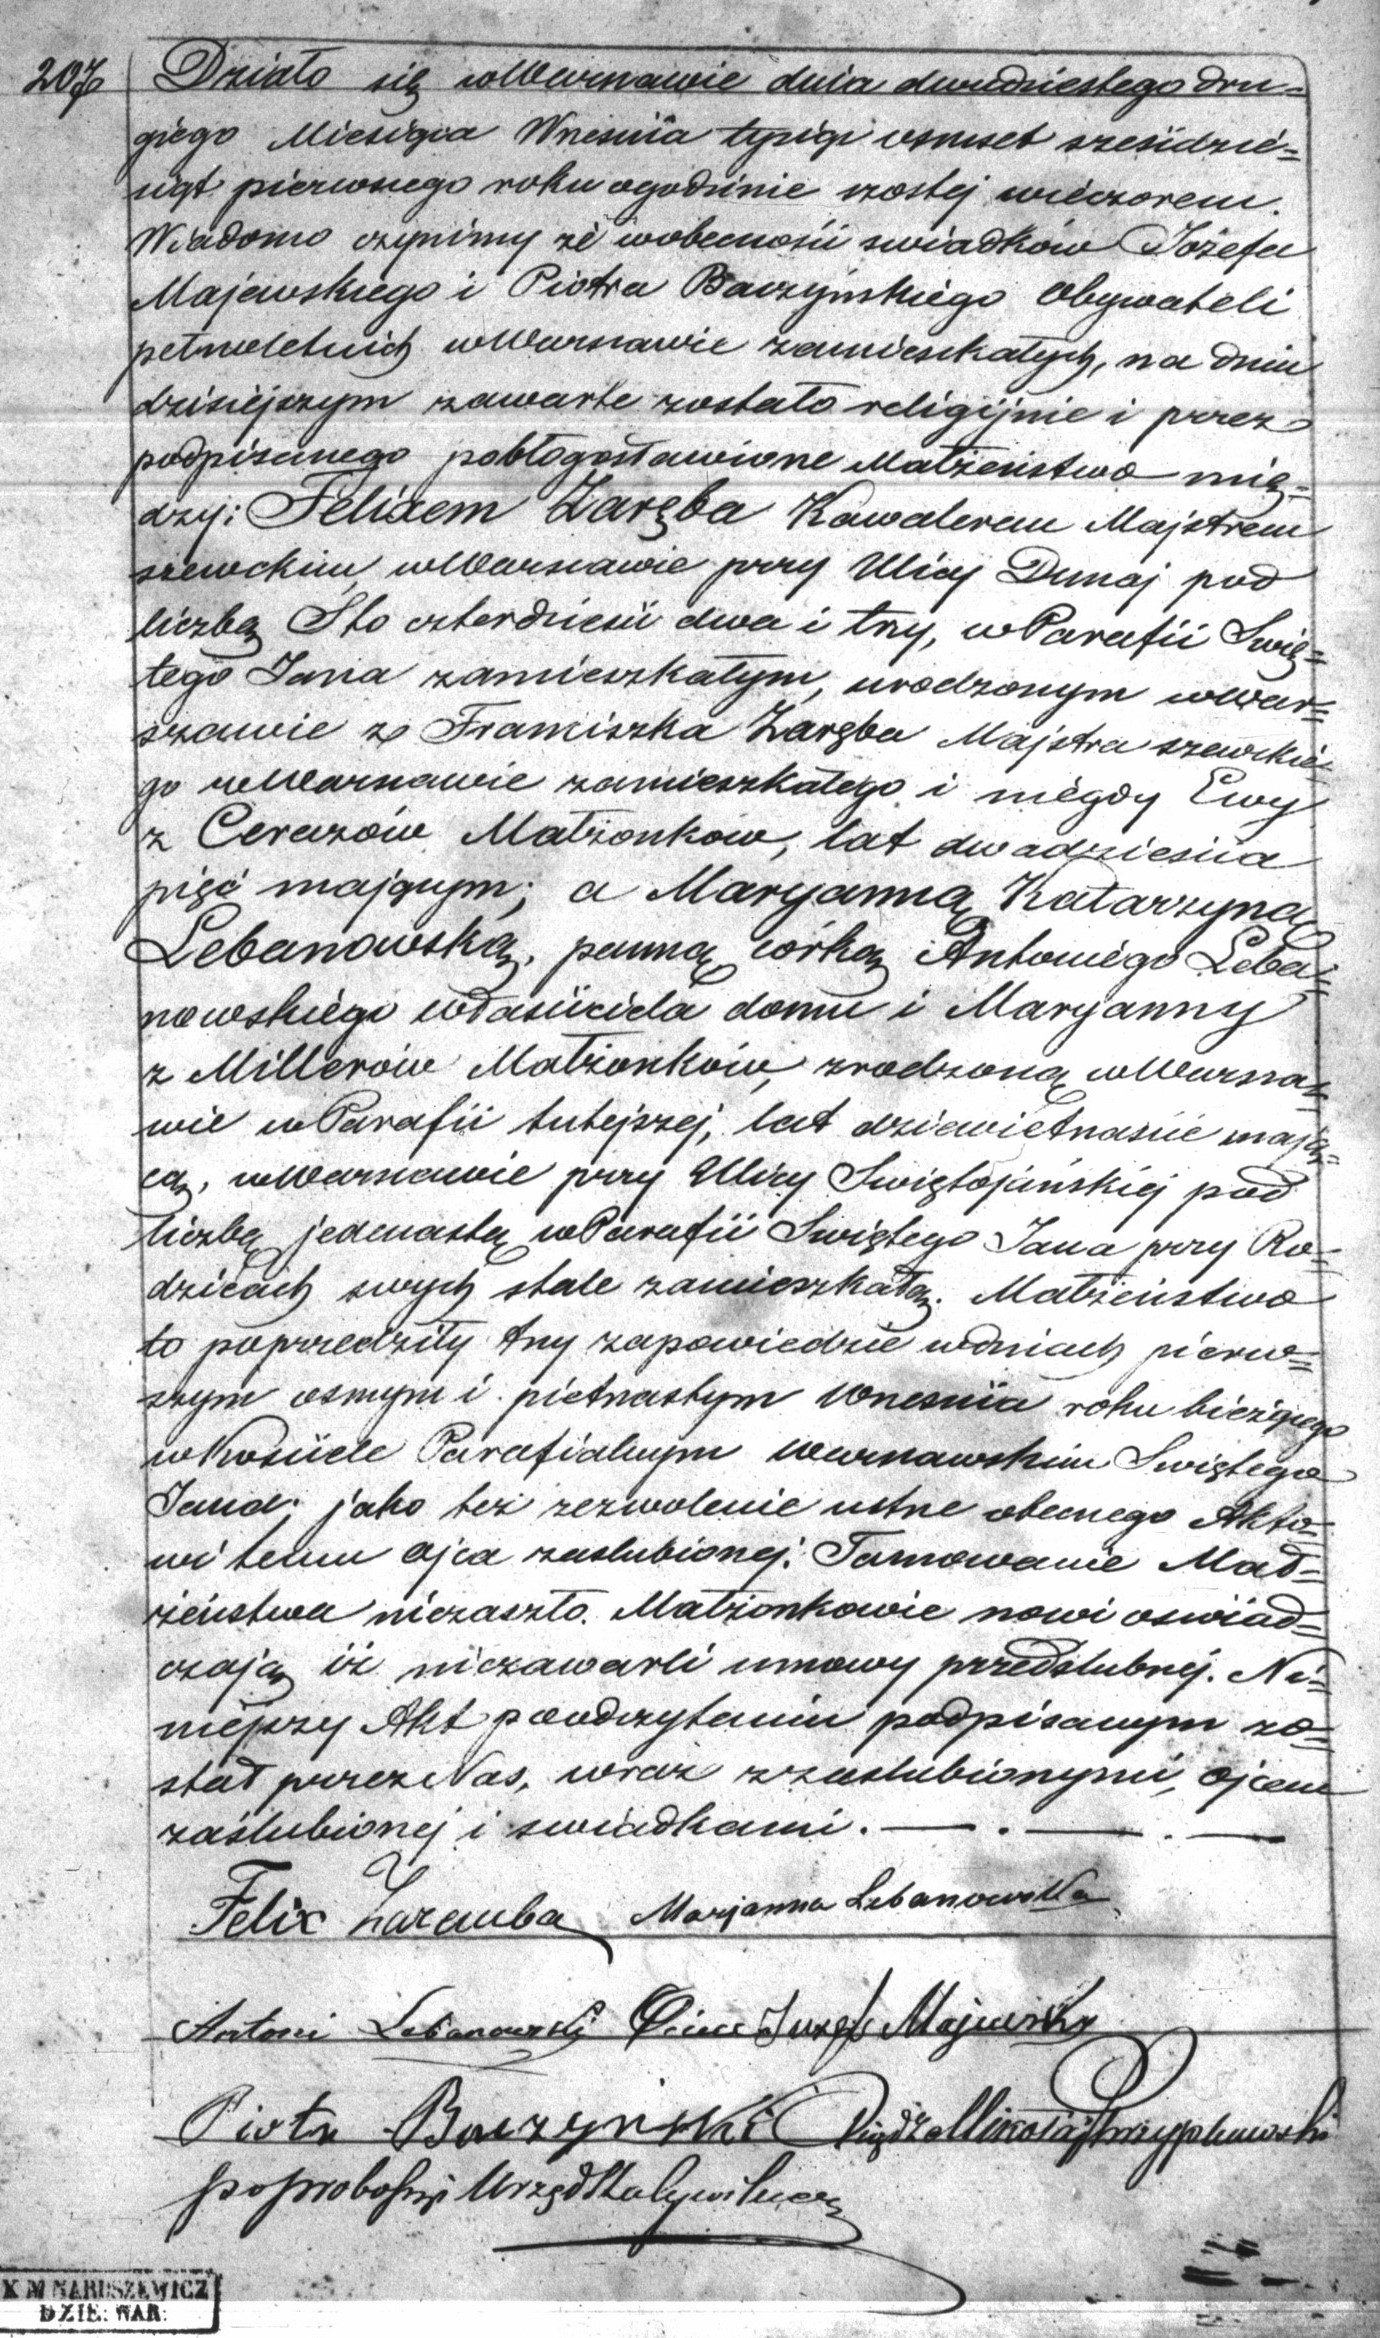 207 Działo się w Warszawie dnia dwudziestego dru=
giego Miesiąca Wrzesnia tysiąc osmset sześćdzie=
siąt pierwszego roku o godzinie szostej wieczorem.
Wiadomo czynimy że w obecności swiadków Józefa
Majewskiego i Piotra Baczyńskiego Obywateli
pełnoletnich w Warszawie zamieszkałych, na dniu
dzisiejszym zawarte zostało religijnie i przez
podpisanego pobłogosławione Małżeństwo mię=
dzy: Felixem Zaręba Kawalerem Majstrem
szewckim, w Warszawie przy Ulicy Dunaj pod
liczbą Sto czterdzieści dwa i trzy, w Parafii Swię=
tego Jana zamieszkałym, urodzonym w War=
szawie z Franciszka Zaręba Majstra szewckie=
go w Warszawie zamieszkałego i niegdy Ewy
z Cerazów Małżonków, lat dwadziescia
pięć mającym; a Maryanną Katarzyną
Lebanowską, panną córką Antoniego Leba=
nowskiego właściciela domu i Maryanny
z Millerów Małżonków, zrodzoną w Warsza=
wie w Parafii tutejszej, lat dziewietnascie mają=
cą, w Warszawie przy Ulicy Swiętojańskiej pod
liczbą jedenastą w Parafii Swiętego Jana przy Ro=
dzicach swych stale zamieszkałą. Małżeństwo
to poprzedziły trzy zapowiedzie w dniach pierw=
szym osmym i pietnastym Wrzesnia roku bieżącego
w Kościele Parafialnym Warszawskim Swiętego
Jana; jako też zezwolenie ustne obecnego Akto=
wi temu ojca zaslubionej. Tamowanie Mał=
żeństwa niezaszło. Małżonkowie nowi oswiad=
czają iż niezawarli umowy przedslubnej. Ni=
niejszy Akt po odczytaniu podpisanym zo=
stał przez Nas, wraz z zaslubionymi, ojcem
zaślubionej i swiadkami.
Felix Zaremba Marjanna Lebanowska
Antoni Lebanowski Ociec Juzef Majewski
Piotr Baczyński Xiądz Mikołaj Przypkowski
podproboszcz Urzęd Sta Cywilnego
K M NARUSZEWICZ
DZIE: WAR: